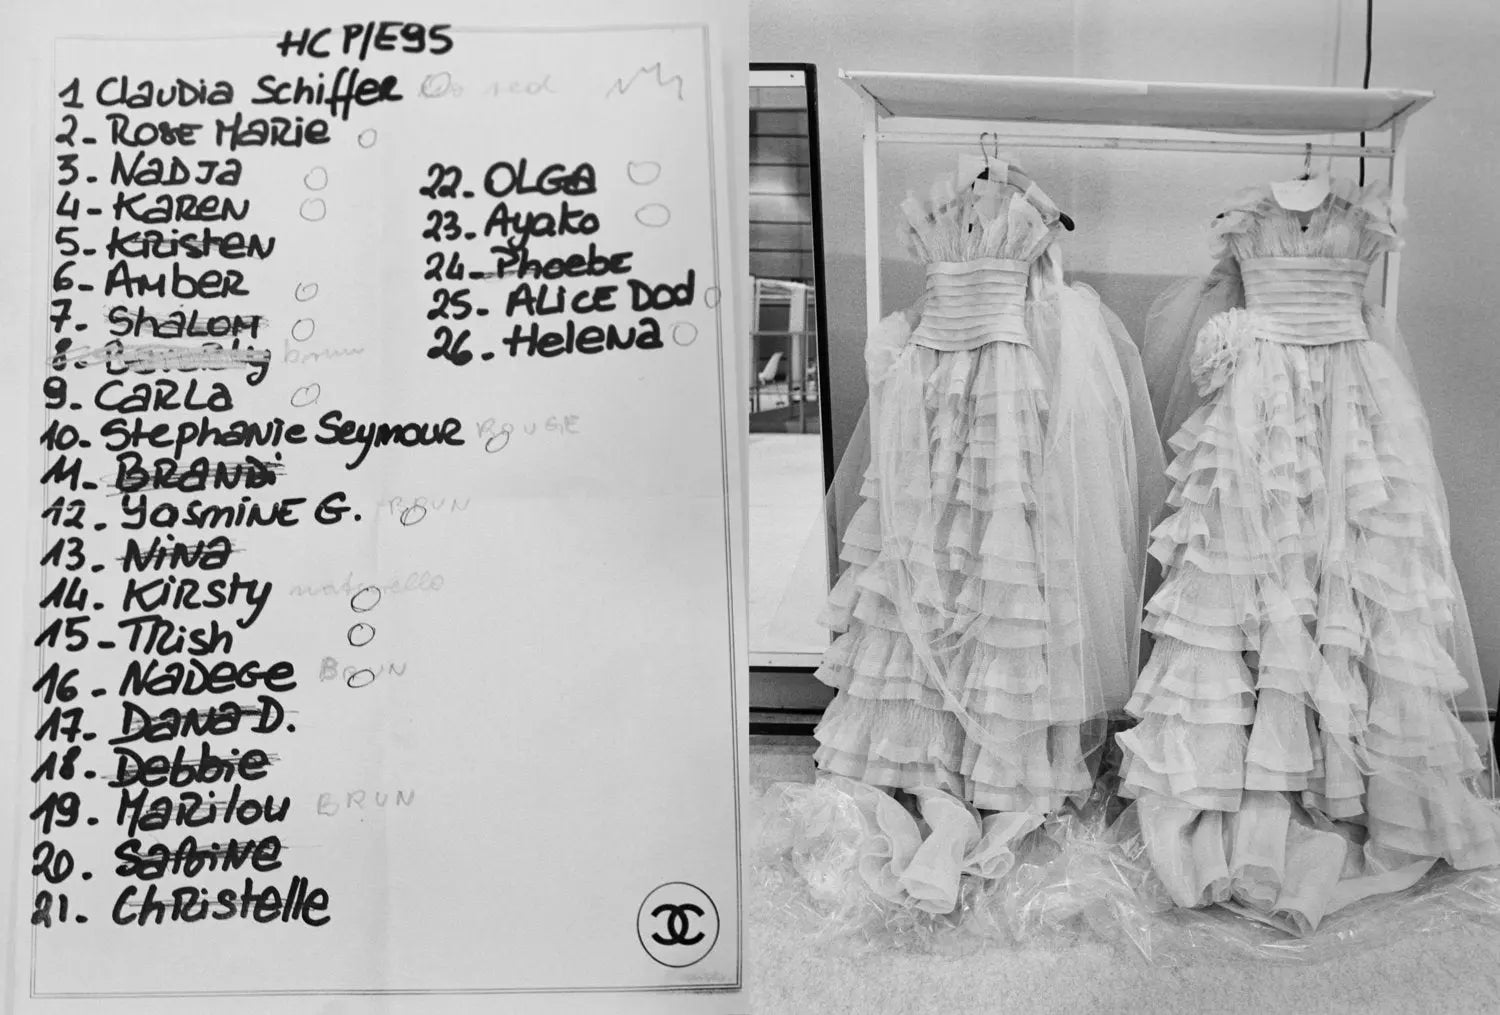 HC P/E95
1 Claudia Schiffer red
2- Rose Marie
3- Nadja
4- Karen
5- Kristen
6- Amber
7- Shalom
8- brun
9- Carla
10- Stephanie Seymour ROUGE
11- Brandi
12- Yasmine G. BRUN
13- Nina
14- Kirsty
15- Trish
16- Nadege BRUN
17- Dana D.
18- Debbie
19- Marilou BRUN
20- Sabine
21- Christelle
22- OLGA
23- Ayako
24- Phoebe
25- Alice Dod
26- Helena